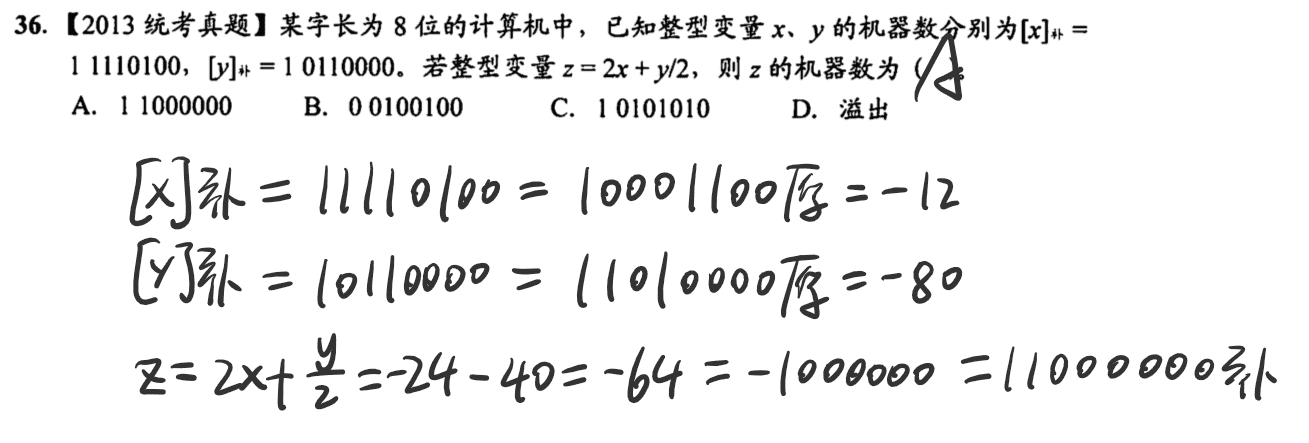 36. 【2013 统考真题】某字长为 8 位的计算机中，已知整型变量 x、y 的机器数分别为[x]补 =
1 1110100，[y]补 = 1 0110000。若整型变量 z = 2x + y/2，则 z 的机器数为（A
A. 1 1000000 B. 0 0100100 C. 1 0101010 D. 溢出
[X]补 = 11110100 = 10001100原 = -12
[Y]补 = 10110000 = 11010000原 = -80
z = 2x + y/2 = -24 - 40 = -64 = -1000000 = 11000000补